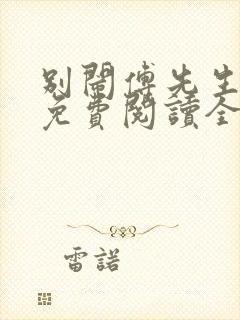 別鬧傅先生
免費閱讀全
雷諾